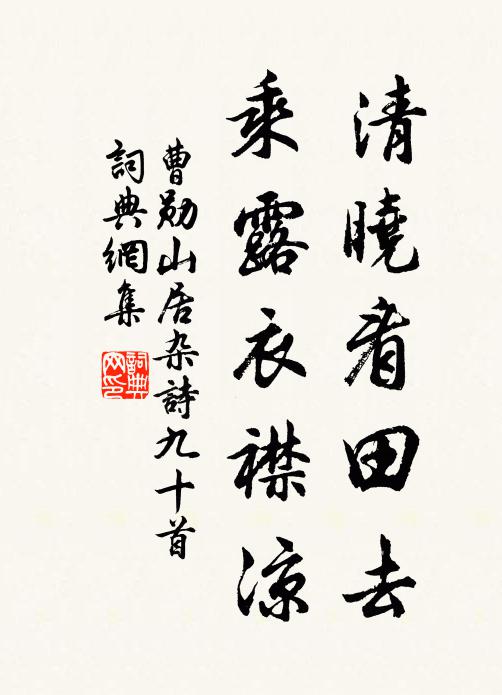 清曉看田去
乘露衣襟涼
曹勛山居杂詩九十首
詞典網集
詞典網印